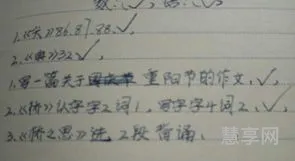 数:√, 语:√,
1.《天》86.87.88.√,
2.《典》32√,
1.写一篇关于重阳节的作文,√,
2.《桥》认字字2词1,写字字4词2,√,
3.《桥之思》选2段背诵、
慧享网